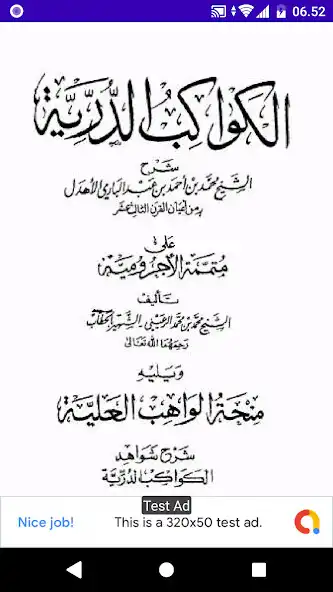 06.52
الكواكب الدرية
شرح
الشيخ محمد بن أحمد بن عبد الباري الأهدل
من أعيان القرن الثالث عشر
على
متممة الآجرومية
تأليف
الشيخ محمد بن محمد الرعيني الشهير بالحطاب
رحمهما الله تعالى
ويليه
منحة الواهب العلية
شرح شواهد
الكواكب الدرية
Test Ad
Nice job!
This is a 320x50 test ad.